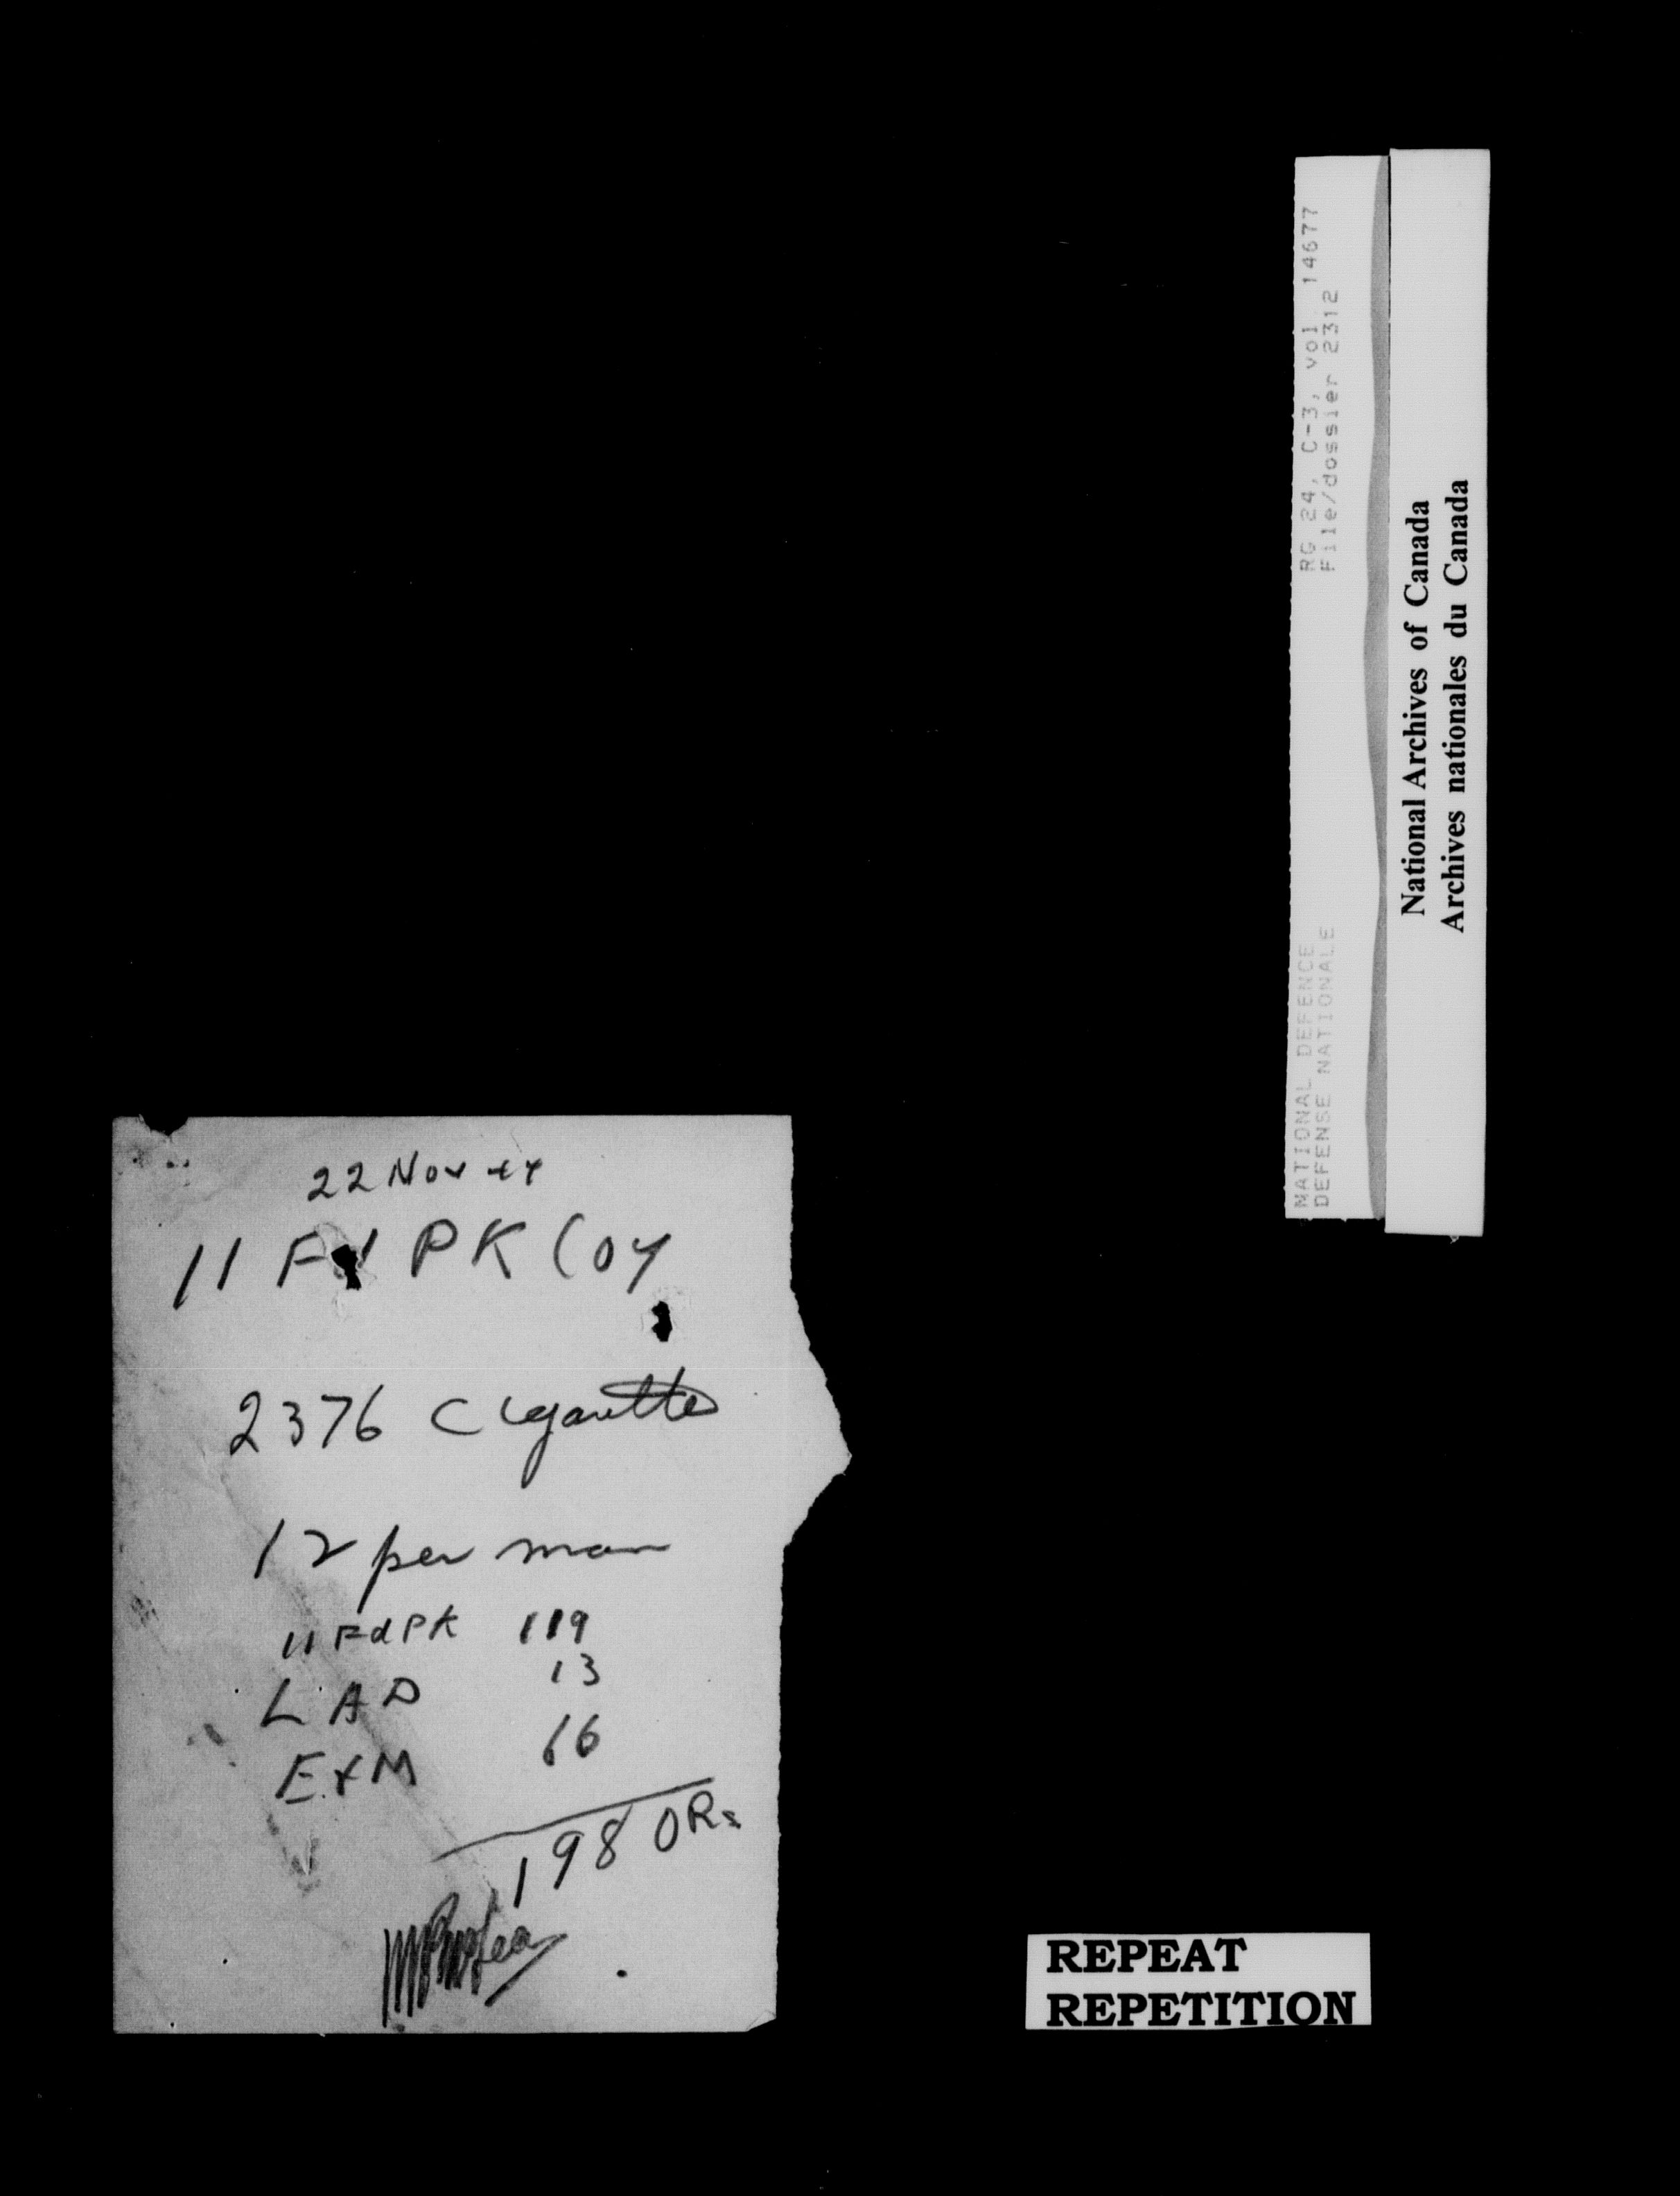 22 Nov 44
11 Fd PK Coy
2376 Cigarettes
12 per man
11 Fd PK 119
LAD 13
E & M 66
198 ORs
RG 24, C-3, vol. 14677
File/dossier 2312
NATIONAL DEFENCE
DEFENSE NATIONALE
National Archives of Canada
Archives nationales du Canada
REPEAT
REPETITION